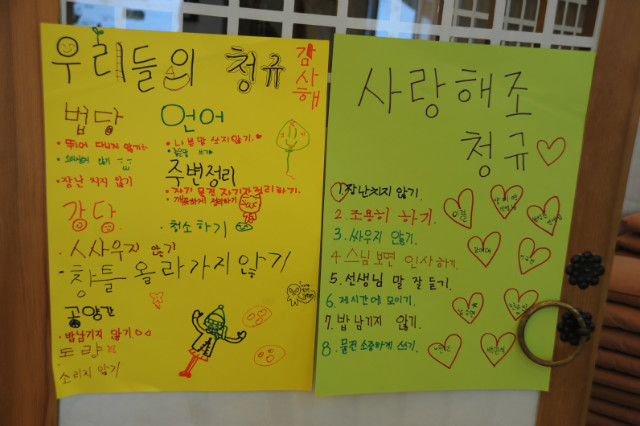 우리들의 청규
감사해
법당
· 뛰어 다니지 않기
· 장난 치지 않기
강당
· 싸우지 않기
· 창틀 올라가지 않기
공양간
· 밥남기지 않기
도량
· 소리지 않기
언어
· 나쁜말 쓰지않기.
주변정리
· 자기 물건 자기가 정리하기.
· 깨끗하게 정리하기
· 청소하기
사랑해조
청규
1. 장난치지 않기.
2. 조용히 하기.
3. 싸우지 않기.
4. 스님 보면 인사하기.
5. 선생님 말 잘 듣기.
6. 제시간에 모이기.
7. 밥 남기지 않기.
8. 물건 소중하게 쓰기.